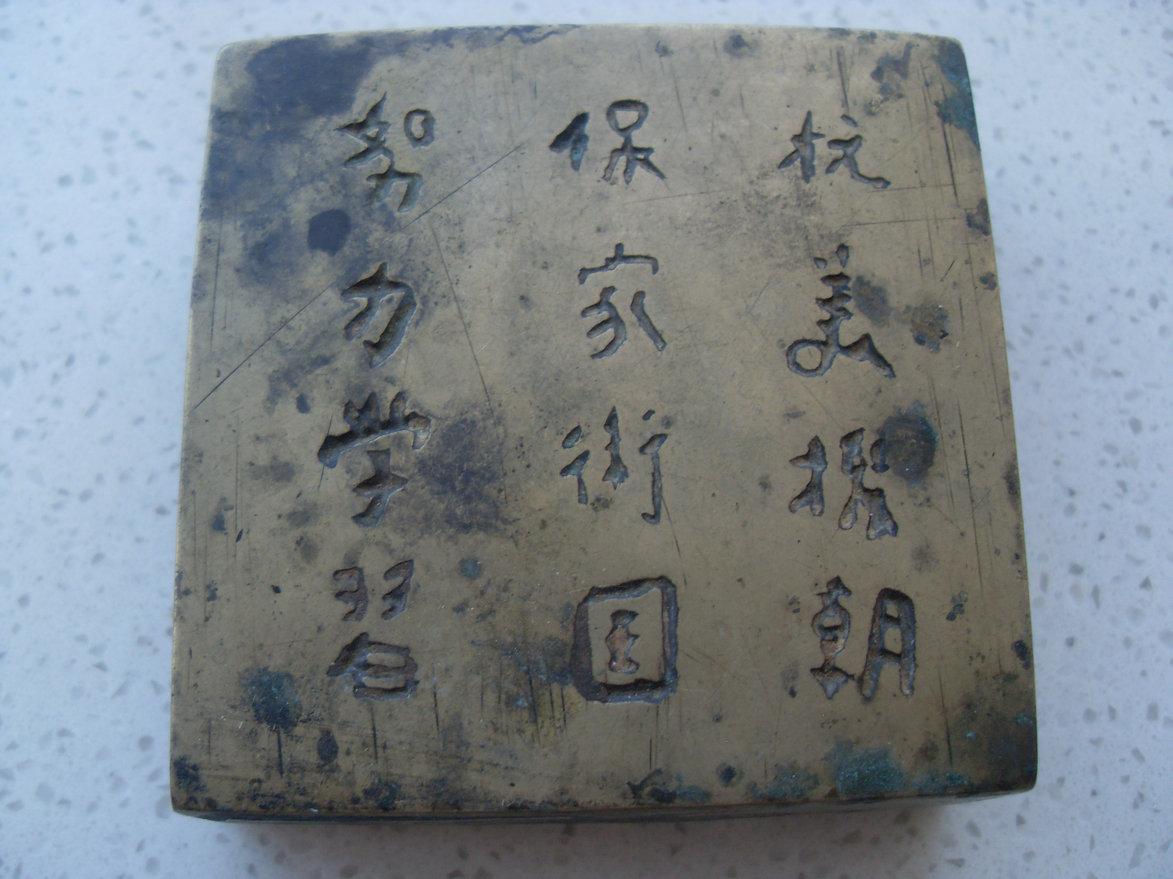 抗美援朝
保家衛国
努力学習